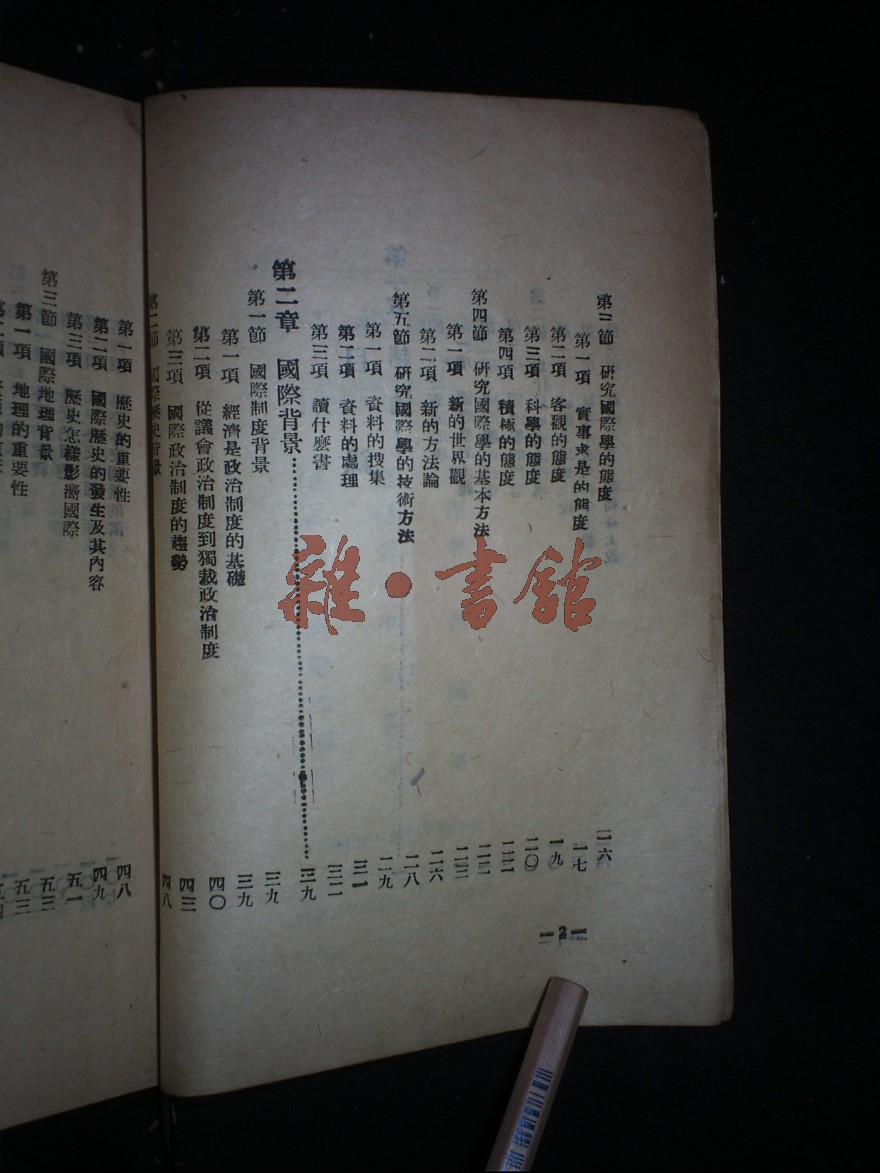 第三節 研究國際學的態度 一六
第一項 實事求是的態度 一七
第二項 客觀的態度 一九
第三項 科學的態度 二〇
第四項 積極的態度 二二
第四節 研究國際學的基本方法 二二
第一項 新的世界觀 二三
第二項 新的方法論 二六
第五節 研究國際學的技術方法 二八
第一項 資料的搜集 二九
第二項 資料的處理 三一
第三項 讀什麽書 三二
第二章 國際背景…………………………三九
第一節 國際制度背景 三九
第一項 經濟是政治制度的基礎 三九
第二項 從議會政治制度到獨裁政治制度 四〇
第三項 國際政治制度的趨勢 四三
第二節 國際歷史背景 四八
—2—
第一項 歷史的重要性 四八
第二項 國際歷史的發生及其內容 四九
第三項 歷史怎樣影響國際 五一
第三節 國際地理背景 五三
第一項 地理的重要性 五三
雜·書館